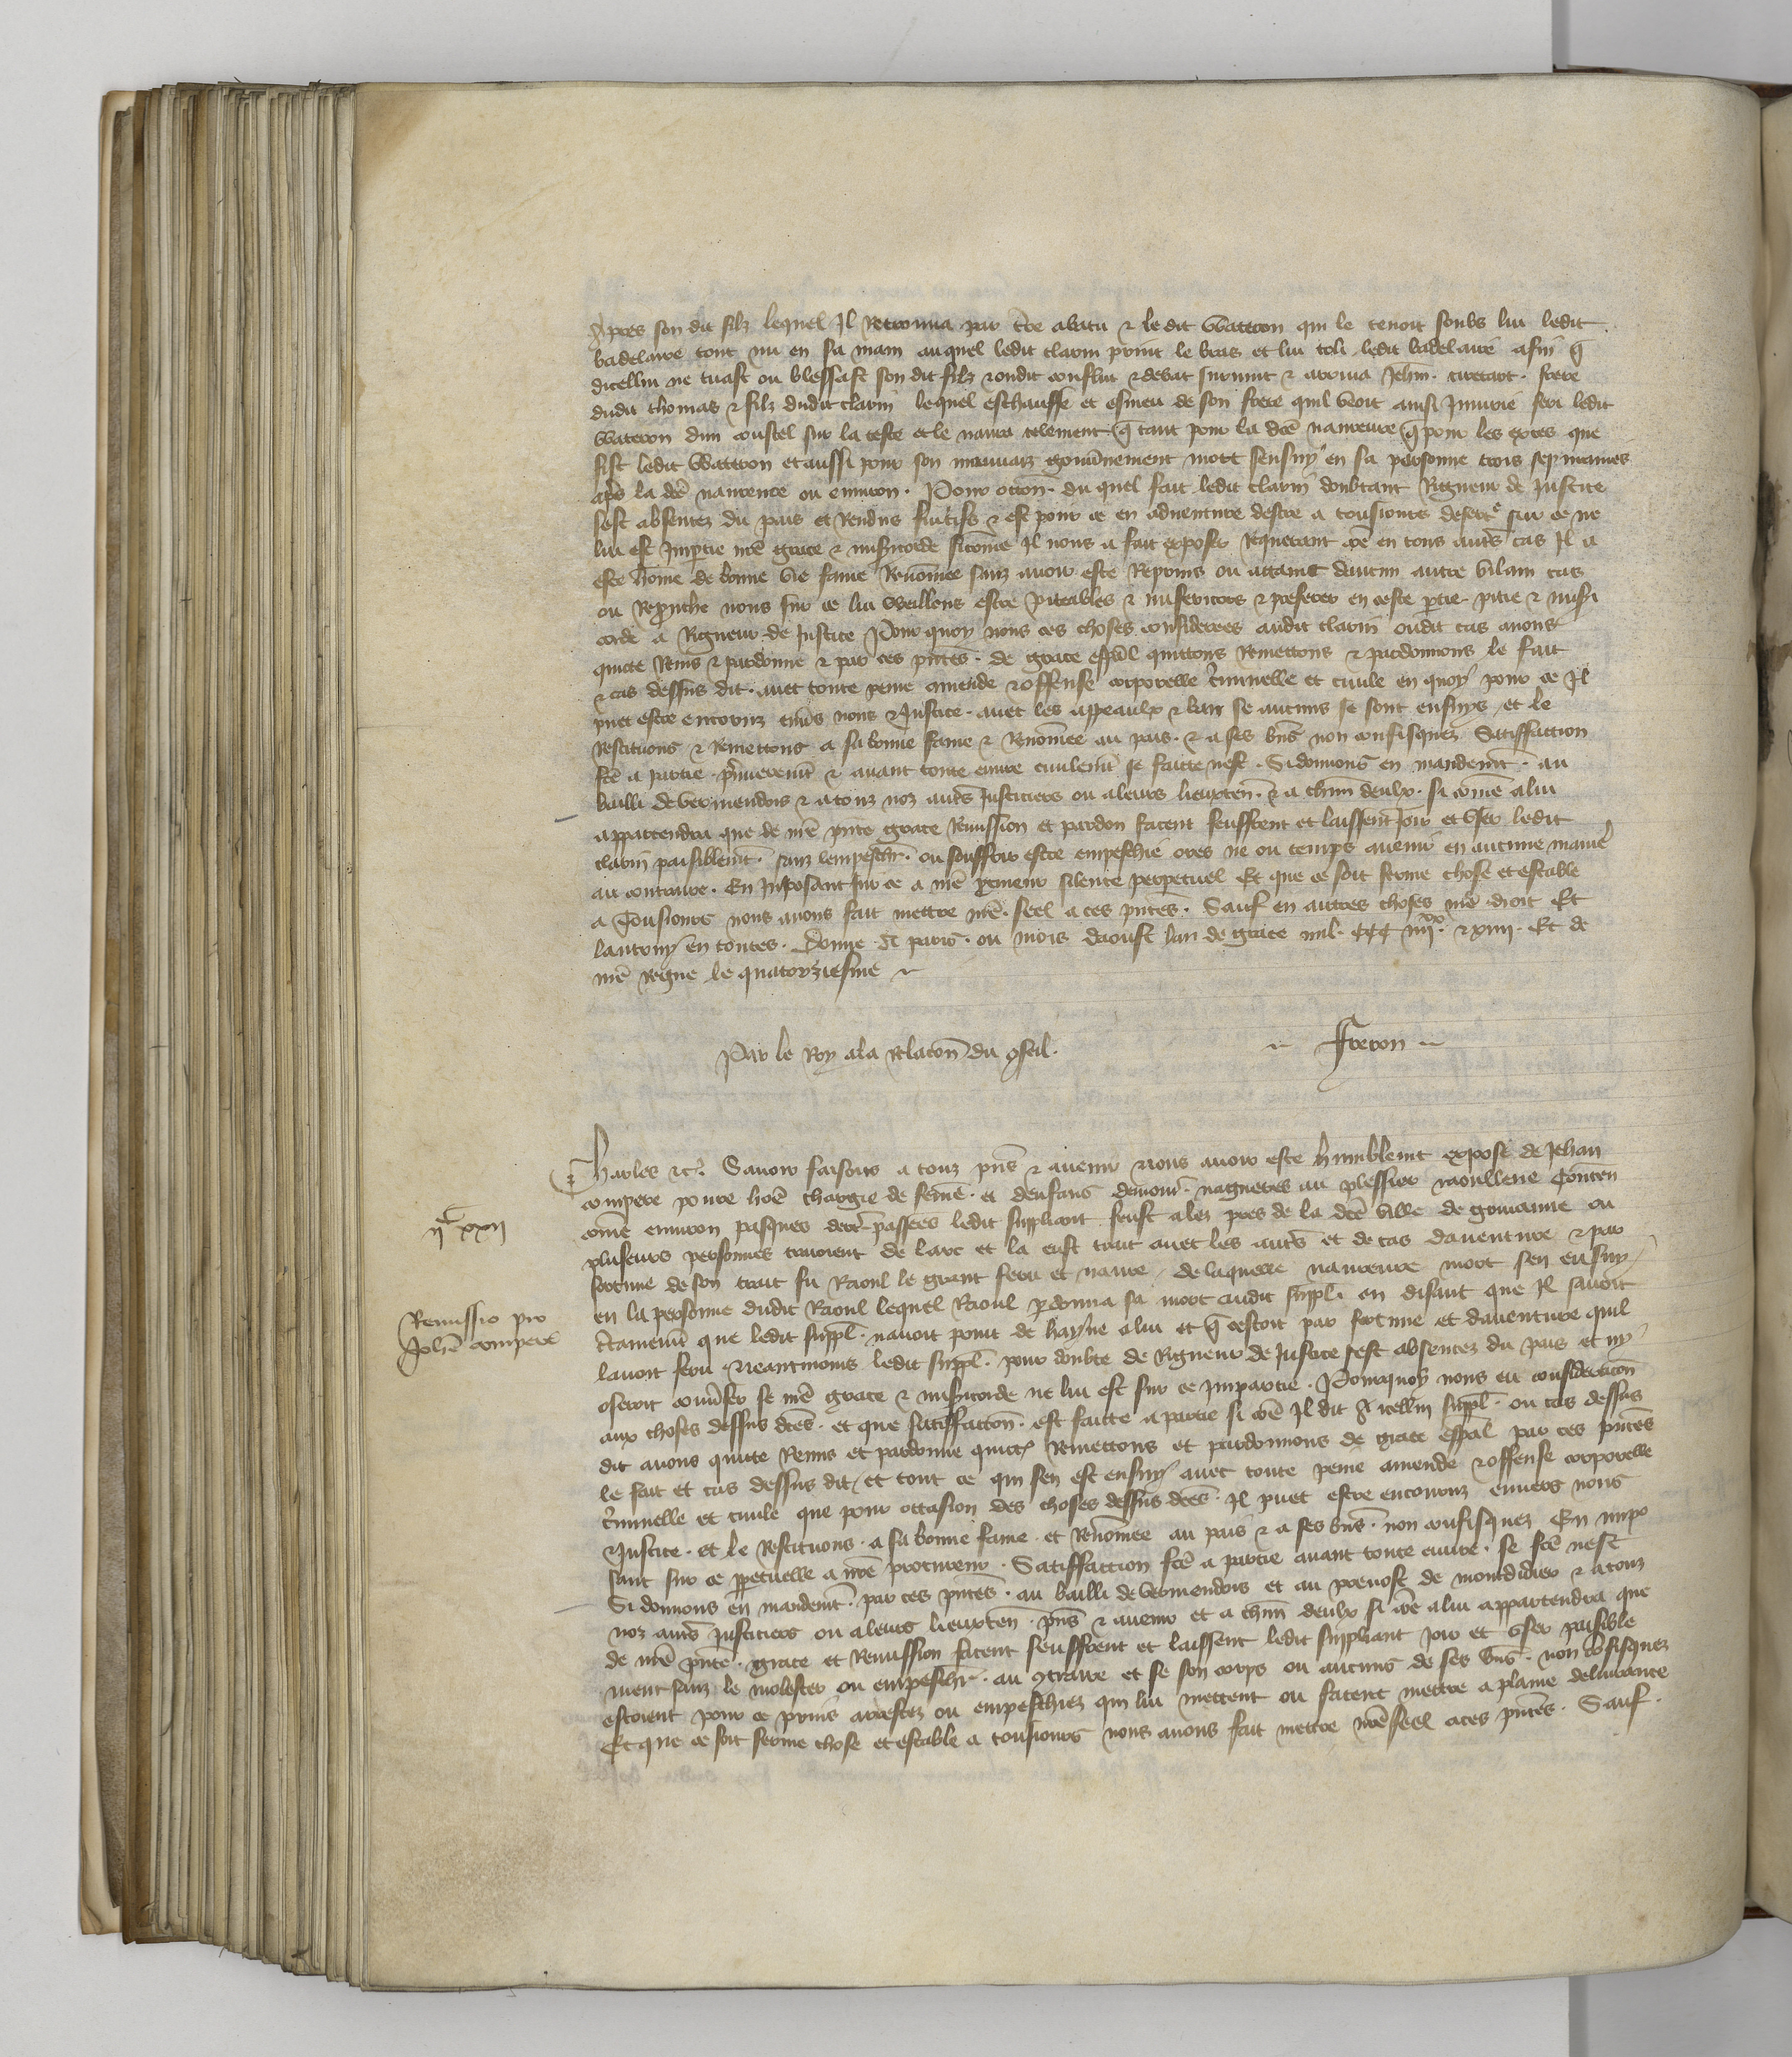 Apres son dit filz lequel Il Retrouua par t̃re abatu & le dit Watteron qui le tenoit soubz lui ledit
badelaire tout nu en sa main auquel ledit clarin print le bras et lui toli ledit badelaire afin q̃
dicellui ne tuast ou blessast son dit filz & oudit conflict & debat suruint & arriua Jehin frere
dudit thomas & filz dudit clarin lequel eschauffe et esmeu de son frere quil veoit ainsi Iniurie feri ledit
Watteron dun coustel sur la teste et le naura telement q̃ tant pour la dc̃e naureure q̃ pour les exces que
fist ledit Watteron et aussi pour son mauuaiz gouũnement mort sensuy en sa personne trois sepmaines
apr̃s la dc̃e naureure ou enuiron. Pour occõn du quel fait ledit clarin doubtant Rigueur de Justice
sest absentez du pais et Rendus fuitifs & est pour ce en aduenture destre a tousiours desert se sur ce ne
lui est Imptie nr̃e grace & misẽricorde sicomme Il nous a fait exposer requerant cõe en tous autr̃s cas Il a
este hõme de bonne vie fame Renõmee sanz auoir este Reprins ou attaint daucun autre vilain cas
ou Reprouche nous sur ce lui veillens estre piteables & misericors & preferer en ceste ptie pitie & misẽri
corde a Rigueur de Justice Pour quoy nous ces choses considerees audit clarin oudit cas auons
quicte Remis & pardonne & par ces pñtes de grace espãl quittons Remettons & pardonnons le fait
& cas dessus dit auec toute peine amende & offense corporelle c̃minelle et ciuile en quoy pour ce Il
puet estre encoruz enũs nous & Justice auec les appeaulx & ban se aucuns se sont ensuys et le
Restituons & Remettons a sa bonne fame & Renõmee au pais & a ses bñs non confisquez Satiffaction
fc̃e a partie p̃mierem̃t & auant toute euure ciuilem̃t se faicte nest. Si donnons en mandem̃t au
bailli de Vermendois & a touz noz autr̃s Justiciers ou a leurs lieuxten̄ & a chũn deulx si cõme a lui
appartendra que de nr̃e pñte grace Remission et pardon facent seuffrent et laissent Joir et vser ledit
clarin paisiblem̃t sanz lempeschr̃ ou souffrir estre empeschie ores ne ou temps auenir en aucune maniẽ
au contraire. En Imposant sur ce a nr̃e p̃cureur silence perpetuel Et que ce soit ferme chose et estable
a Tousiours nous auons fait mettre nr̃e seel a ces pñtes. Sauf en autres choses nr̃e droit Et
lautruy en toutes. Donne A paris ou mois daoust lan de grace mil ccc iiijˣˣ & xiiij. Et de
nr̃e Regne le quatorziesme
Par le Roy a la Relacõn du 9seil.
Freron
Charles &c. Sauoir faisons a touz pñs & auenir Nous auoir este humblem̃t expose de Jehan
compere poure hõe chargie de fem̃e et denfans demour̃ nagueres au plessier raoulleue Conten
ijᶜ xxij
cõme enuiron pasques derr̃ passees ledit suppliant feust alez pres de la dc̃e ville de ou
pluseurs personnes traioient de larc et la eust trait auec les autr̃s et de cas dauenture & par
fortune de son trait fu Raoul le grant feru et naure de laquelle naureure mort sen ensuy
Remissio pro
Joh̃e compere
en la personne dudit Raoul lequel Raoul p̃donna sa mort audit suppl̃ en disant que Il sauoit
c̃tainem̃t que ledit suppl̃ nauoit point de hayne a lui et q̃ cestoit par fortune et dauenture quil
lauoit feru Neantmoins ledit suppl̃ pour doubte de Rigueur de Justice sest absentez du pais et ny
oseroit conũser se nr̃e grace & misẽricorde ne lui est sur ce impartie. Pourquoy nous eu consideracõn
aux choses dessus dc̃es et que satiffaccõn est faicte a partie si cõe Il dit A icellui suppl̃ ou cas dessus
dit auons quicte Remis et pardonne quictõs Remettons et pardonnons de grace espãl par ces pñtes
le fait et cas dessus dit et tout ce qui sen est ensuy auec toute peine amende & offense corporelle
c̃minelle et ciuile que pour occasion des choses dessus dc̃es Il puet estre encouruz enuers nous
& Justice et le Restituons a sa bonne fame et Renõmee au pais & a ses bñs non confisquez En impo
sant sur ce ppetuelle a nr̃e procureur. Satiffaction fc̃e a partie auant toute euure se fc̃e nest
Si donnons en mandem̃t par ces pñtes au bailli de vermendois et au preuost de mondidier & a touz
noz autr̃s Justiciers ou a leurs lieuxten̄ pñs & auenir et a chũn deulx si cõe a lui appartendra que
de nr̃e pñte grace et Remission facent seuffrent et laissent ledit suppliant Joir et vser paisible
ment sanz le molester ou empeschr̃ au 9traire et se son corps ou aucuns de ses bñs non cõfisquez
estoient pour ce prins arrestez ou empeschiez qui lui mettent ou facent mettre a plaine deliurance
Et que ce soit ferme chose et estable a tousiours nous auons fait mettre nr̃e seel a ces pñtes. Sauf